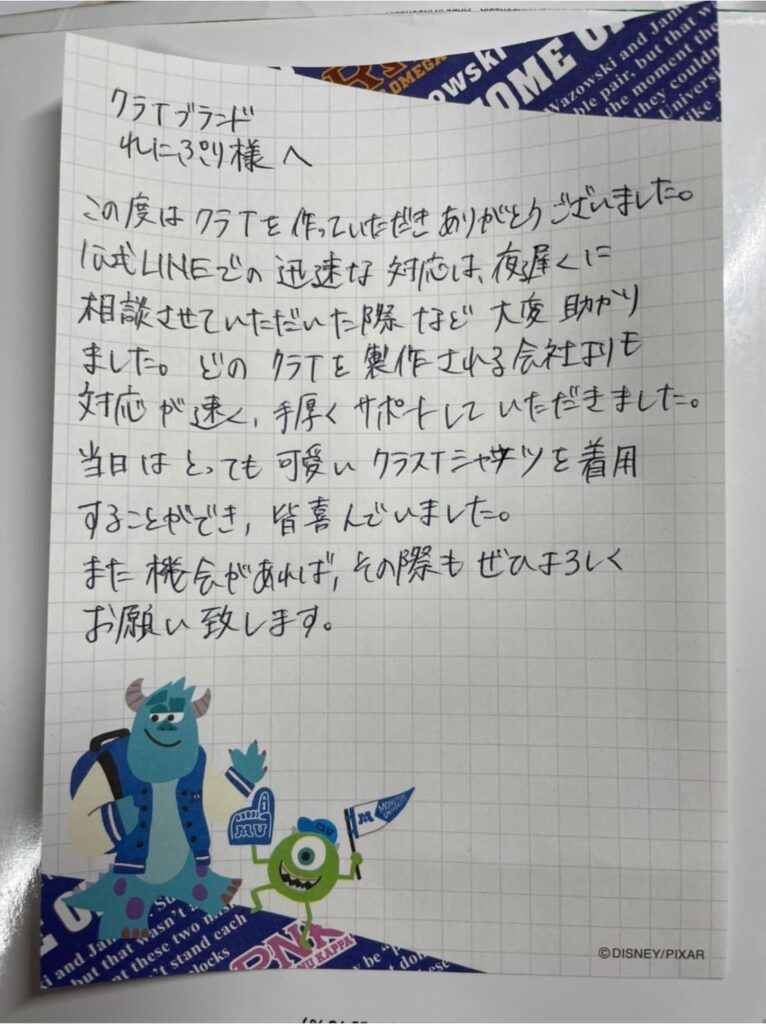 OMEGA
owski
OME O
Wazowski and Jam
ble pair, but that w
the moment the
they couldn
Univers
like a
クラTブランド
れにぷり様へ
この度はクラTを作っていただきありがとうございました。
公式LINEでの迅速な対応は、夜遅くに
相談させていただいた際など大変助かり
ました。どのクラTを製作される会社よりも
対応が速く、手厚くサポートしていただきました。
当日はとっても可愛いクラスTシャツを着用
することができ、皆喜んでいました。
また機会があれば、その際もぜひよろしく
お願い致します。
MU
MONSTERS
ki and Jam
but that wasn't a
these two mis
n't stand each
locks
NU KAPPA
©DISNEY/PIXAR